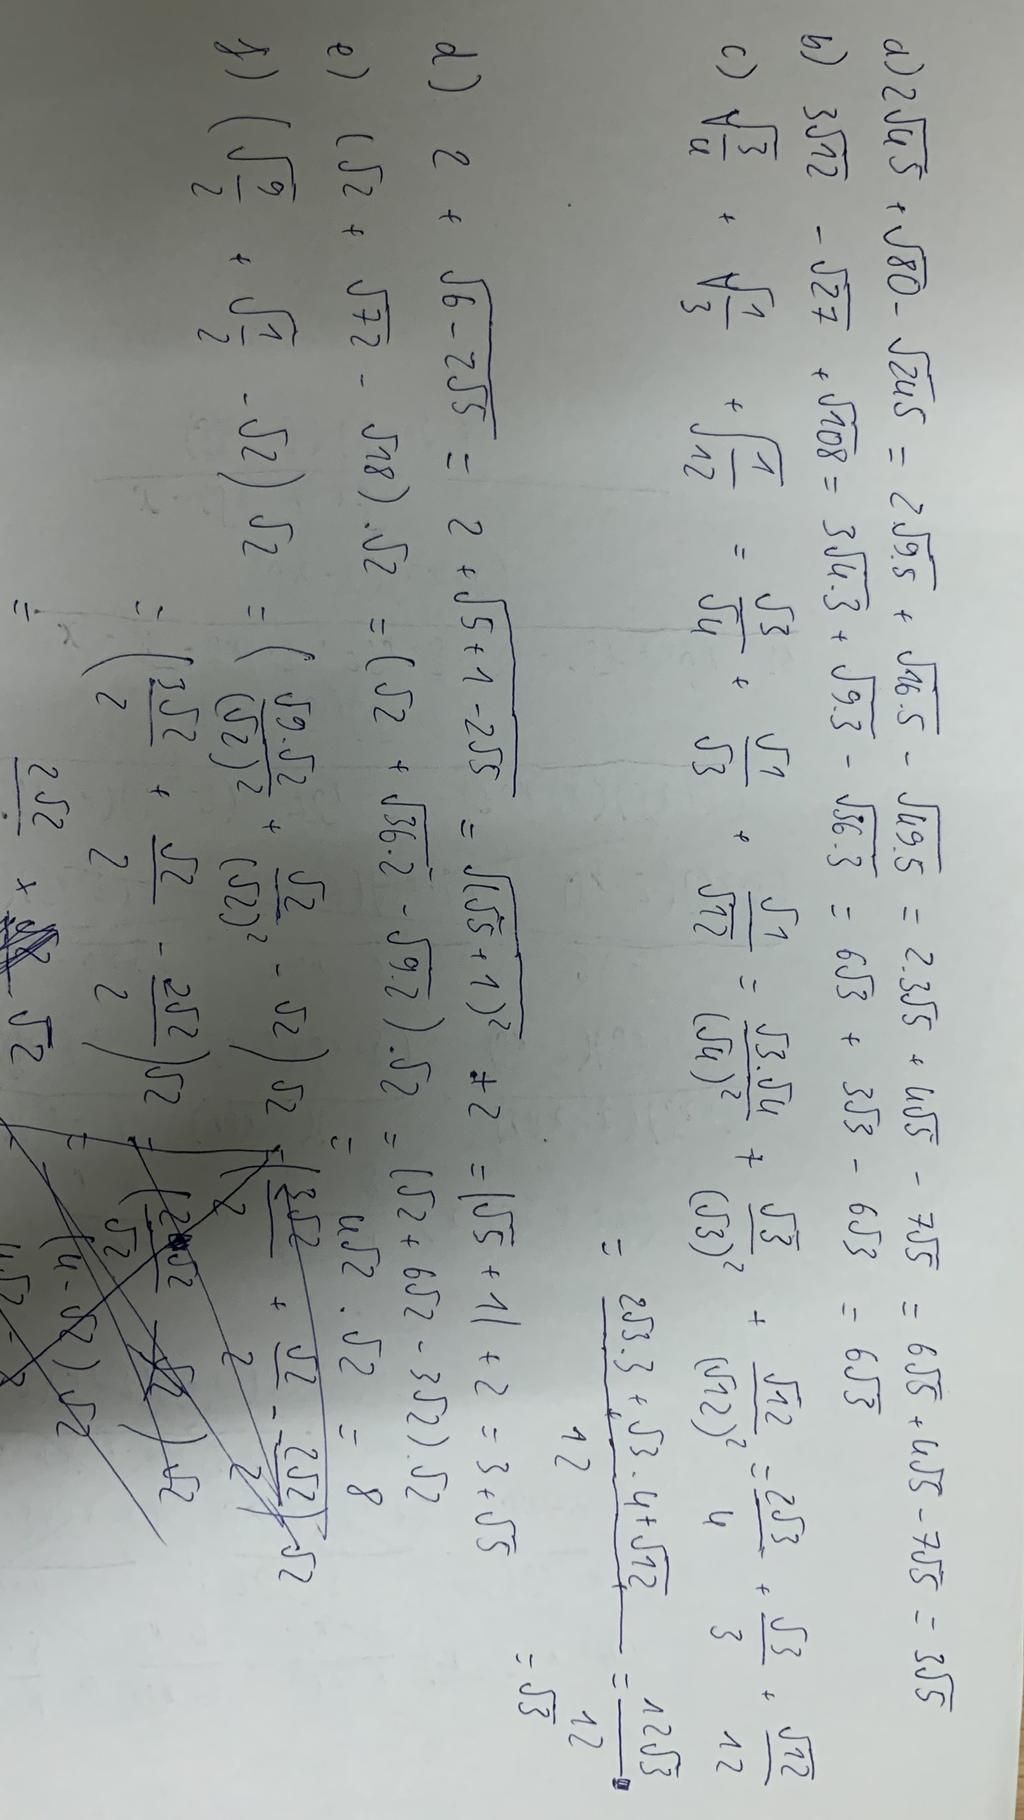 a) 2√45 + √80 - √245 = 2√9.5 + √16.5 - √49.5 = 2.3√5 + 4√5 - 7√5 = 6√5 + 4√5 - 7√5 = 3√5
b) 3√12 - √27 + √108 = 3√4.3 + √9.3 - √36.3 = 6√3 + 3√3 - 6√3 = 6√3
c) √(3/4) + √(1/3) + √(1/12) = √3/√4 + √1/√3 + √1/√12 = √3.√4/(√4)² + √3/(√3)² + √12/(√12)² = 2√3/4 + √3/3 + √12/12
= (2√3.3 + √3.4 + √12)/12 = 12√3/12
= √3
d) 2 + √(6 - 2√5) = 2 + √(5 + 1 - 2√5) = √(√5 + 1)² + 2 = |√5 + 1| + 2 = 3 + √5
e) (√2 + √72 - √18).√2 = (√2 + √36.2 - √9.2).√2 = (√2 + 6√2 - 3√2).√2
= 4√2 . √2 = 8
f) (√(9/2) + √(1/2) - √2) √2 = (√9.√2/(√2)² + √2/(√2)² - √2) √2 = (3√2/2 + √2/2 - 2√2/2) √2
= (3√2/2 + √2/2 - 2√2/2) √2
= (4 - √2) . √2
= 2√2/2 × √2